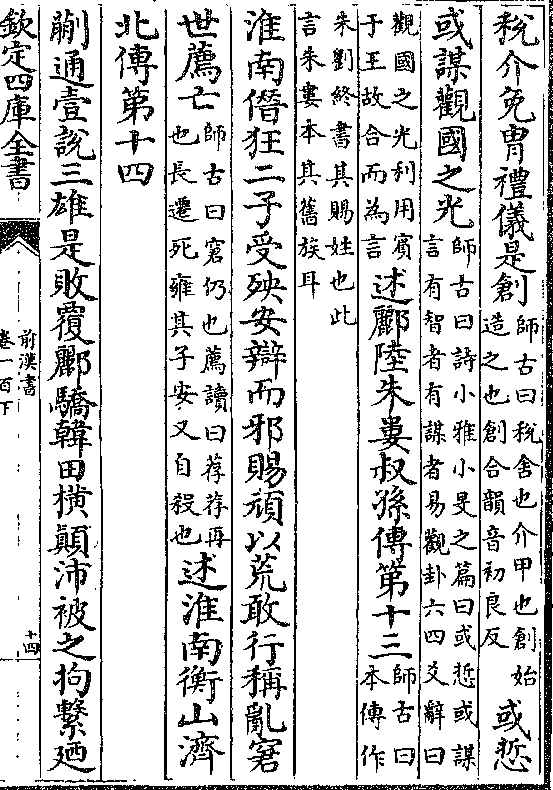 稅介免胄禮儀是創師古曰稅舍也介甲也創始造之也創合韻音初良反或悊
或謀觀國之光師古曰詩小雅小旻之篇曰或悊或謀言有智者有謀者易觀卦六四爻辭曰
觀國之光利用賔于王故合而為言述酈陸朱婁叔孫傳第十三師古曰本傳作
朱劉終書其賜姓也此言朱婁本其舊族耳
淮南僭狂二子受殃安辯而邪賜頑以荒敢行稱亂窘
世薦亡師古曰窘仍也薦讀曰荐荐再也長遷死雍其子安又自殺也述淮南衡山濟
北傳第十四
蒯通壹說三雄是敗覆酈驕韓田横顛沛被之拘繫廼
欽定四庫全書
前漢書
卷一百下
十四